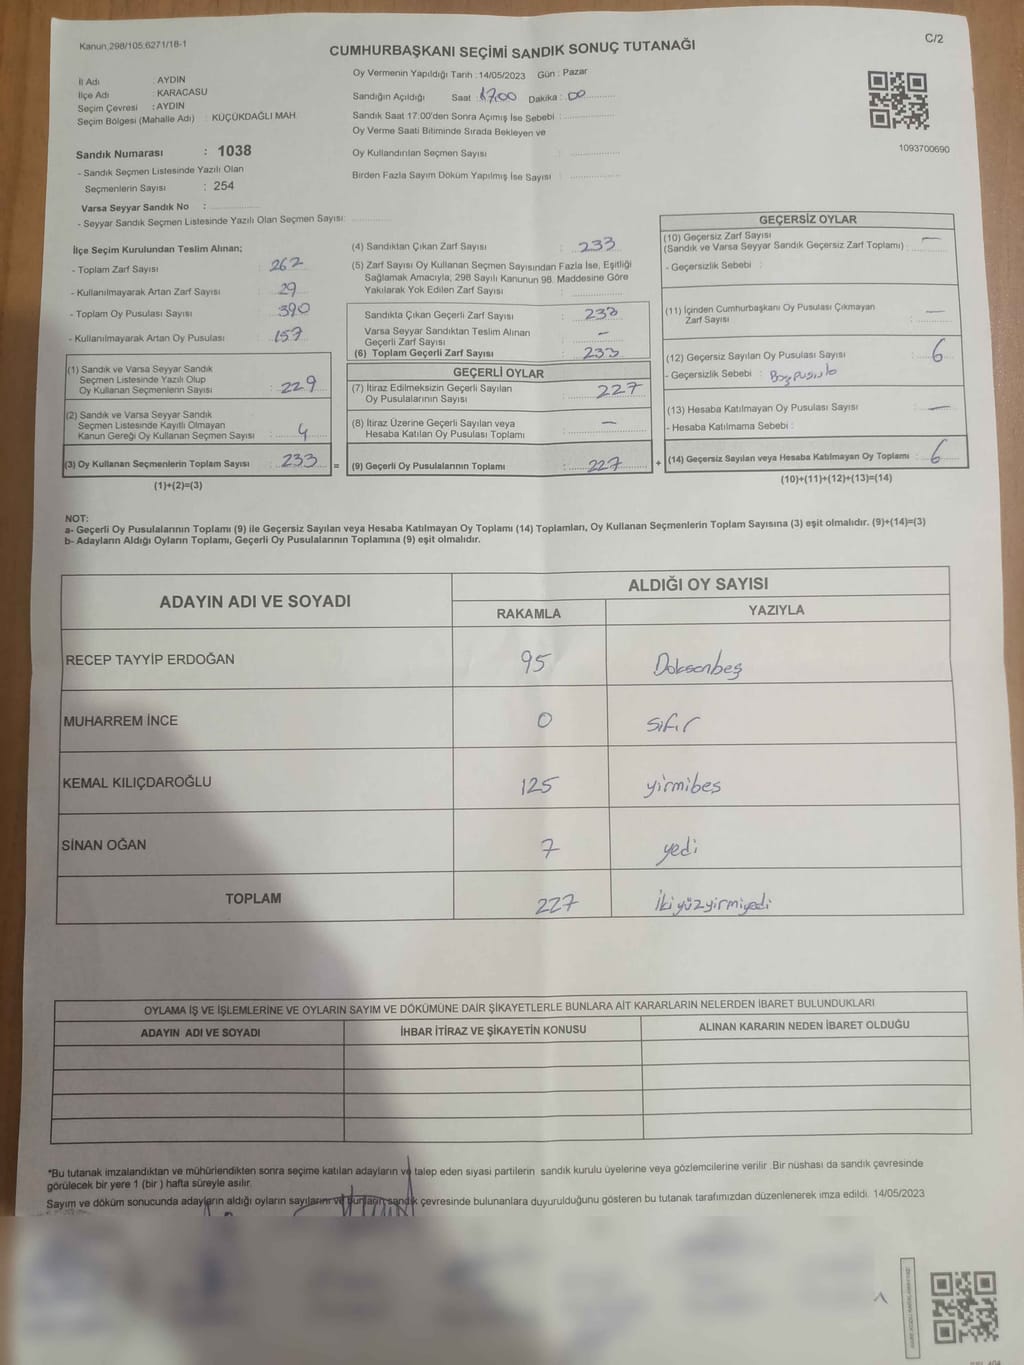 Kanun,298/105,6271/18-1
CUMHURBAŞKANI SEÇİMİ SANDIK SONUÇ TUTANAĞI
C/2
İl Adı : AYDIN
İlçe Adı : KARACASU
Seçim Çevresi : AYDIN
Seçim Bölgesi (Mahalle Adı) : KÜÇÜKDAĞLI MAH.
Sandık Numarası : 1038
- Sandık Seçmen Listesinde Yazılı Olan
Seçmenlerin Sayısı : 254
Varsa Seyyar Sandık No :
- Seyyar Sandık Seçmen Listesinde Yazılı Olan Seçmen Sayısı:
Oy Vermenin Yapıldığı Tarih : 14/05/2023 Gün : Pazar
Sandığın Açıldığı Saat : 17.00 Dakika : 00
Sandık Saat 17.00'den Sonra Açımış İse Sebebi :
Oy Verme Saati Bitiminde Sırada Bekleyen ve
Oy Kullandırılan Seçmen Sayısı :
Birden Fazla Sayım Döküm Yapılmış İse Sayısı :
1093700690
İlçe Seçim Kurulundan Teslim Alınan;
- Toplam Zarf Sayısı : 262
- Kullanılmayarak Artan Zarf Sayısı : 29
- Toplam Oy Pusulası Sayısı : 390
- Kullanılmayarak Artan Oy Pusulası : 157
(1) Sandık ve Varsa Seyyar Sandık
Seçmen Listesinde Yazılı Olup
Oy Kullanan Seçmenlerin Sayısı : 229
(2) Sandık ve Varsa Seyyar Sandık
Seçmen Listesinde Kayıtlı Olmayan
Kanun Gereği Oy Kullanan Seçmen Sayısı : 4
(3) Oy Kullanan Seçmenlerin Toplam Sayısı : 233
(1)+(2)=(3)
(4) Sandıktan Çıkan Zarf Sayısı : 233
(5) Zarf Sayısı Oy Kullanan Seçmen Sayısından Fazla İse, Eşitliği
Sağlamak Amacıyla, 298 Sayılı Kanunun 98. Maddesine Göre
Yakılarak Yok Edilen Zarf Sayısı :
Sandıkta Çıkan Geçerli Zarf Sayısı : 233
Varsa Seyyar Sandıktan Teslim Alınan
Geçerli Zarf Sayısı : —
(6) Toplam Geçerli Zarf Sayısı : 233
GEÇERLİ OYLAR
(7) İtiraz Edilmeksizin Geçerli Sayılan
Oy Pusulalarının Sayısı : 227
(8) İtiraz Üzerine Geçerli Sayılan veya
Hesaba Katılan Oy Pusulası Toplamı : —
= (9) Geçerli Oy Pusulalarının Toplamı : 227 +
GEÇERSİZ OYLAR
(10) Geçersiz Zarf Sayısı —
(Sandık ve Varsa Seyyar Sandık Geçersiz Zarf Toplamı) :
- Geçersizlik Sebebi :
(11) İçinden Cumhurbaşkanı Oy Pusulası Çıkmayan —
Zarf Sayısı :
(12) Geçersiz Sayılan Oy Pusulası Sayısı : 6
- Geçersizlik Sebebi : Boş pusula
(13) Hesaba Katılmayan Oy Pusulası Sayısı : —
- Hesaba Katılmama Sebebi :
(14) Geçersiz Sayılan veya Hesaba Katılmayan Oy Toplamı : 6
(10)+(11)+(12)+(13)=(14)
NOT:
a- Geçerli Oy Pusulalarının Toplamı (9) ile Geçersiz Sayılan veya Hesaba Katılmayan Oy Toplamı (14) Toplamları, Oy Kullanan Seçmenlerin Toplam Sayısına (3) eşit olmalıdır. (9)+(14)=(3)
b- Adayların Aldığı Oyların Toplamı, Geçerli Oy Pusulalarının Toplamına (9) eşit olmalıdır.
ADAYIN ADI VE SOYADI
ALDIĞI OY SAYISI
RAKAMLA YAZIYLA
RECEP TAYYİP ERDOĞAN 95 Doksanbeş
MUHARREM İNCE 0 sıfır
KEMAL KILIÇDAROĞLU 125 yirmibes
SİNAN OĞAN 7 yedi
TOPLAM 227 İkiyüzyirmiyedi
OYLAMA İŞ VE İŞLEMLERİNE VE OYLARIN SAYIM VE DÖKÜMÜNE DAİR ŞİKAYETLERLE BUNLARA AİT KARARLARIN NELERDEN İBARET BULUNDUKLARI
ADAYIN ADI VE SOYADI İHBAR İTİRAZ VE ŞİKAYETİN KONUSU ALINAN KARARIN NEDEN İBARET OLDUĞU
*Bu tutanak imzalandıktan ve mühürlendikten sonra seçime katılan adayların ve talep eden siyasi partilerin sandık kurulu üyelerine veya gözlemcilerine verilir .Bir nüshası da sandık çevresinde
görülecek bir yere 1 (bir ) hafta süreyle asılır.
Sayım ve döküm sonucunda adayların aldığı oyların sayılarını ve bunların sandık çevresinde bulunanlara duyurulduğunu gösteren bu tutanak tarafımızdan düzenlenerek imza edildi. 14/05/2023